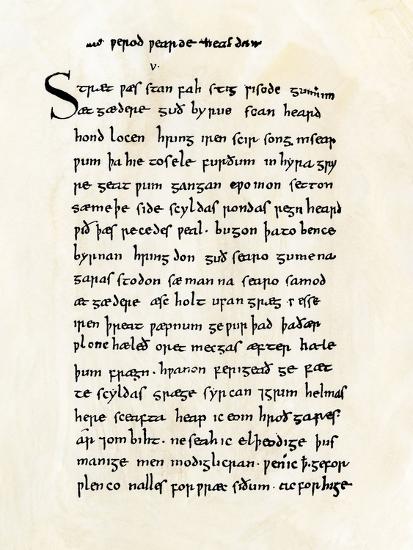 ƿerod ƿearde healdan
v.
Stræt ƿæs stan fah stig ƿisode gumum
æt gædere guð byrne scan heard
hond locen hring iren scir song in sear
ƿum þa hie to sele furðum in hyra gry
re geat ƿum gangan cƿomon setton
sæmeþe side scyldas rondas regn heard
ƿið þæs recedes ƿeal · bugon þa to bence
byrnan hring don guð searo gumena
garas stodon sæ man na searo samod
æt gædere æsc holt ufan græg · ƿæs se
iren þreat ƿæpnum ge ƿur þad þa ðær
ƿlonc hæleð oret mecgas æfter hæle
þum frægn · hƿanon ferigeað ge fæt
te scyldas græge syrcan ⁊grim helmas
here sceafta heap ic eom hroðgares
ár ⁊ombiht · ne seah ic elþeodige þus
manige men modiglicran · ƿen ic ꝥ ge for
ƿlenco nalles for ƿræc siðum · ac for hige